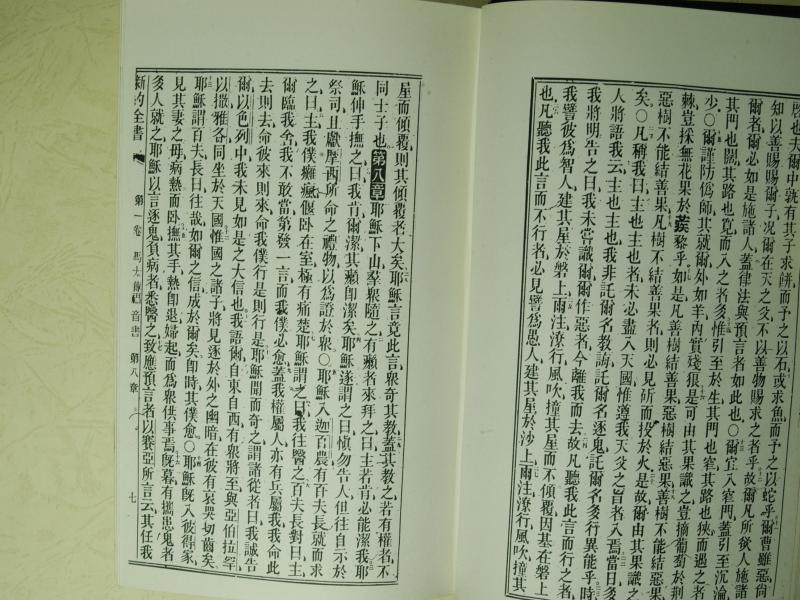 啓也夫爾中孰有其子求餅而予之以石或求魚而予之以蛇乎爾曹雖惡尙
知以善賜賜爾子况爾在天之父不以善物賜求之者乎故爾凡所欲人施諸
爾者爾必如是施諸人蓋律法與預言者如此也〇爾宜入窄門蓋引至於沉淪
其門也闊其路也寬而入之者多惟引至於生其門也窄其路也狹而遇之者
少〇爾謹防僞師其就爾外如羊內實殘狼是可由其果識之豈摘葡萄於荆
棘豈採無花果於蒺藜乎如是凡善樹結善果惡樹結惡果善樹不能結惡果
惡樹不能結善果凡樹不結善果者則必見斫而投於火是故爾由其果識之
矣〇凡稱我曰主也主也者未必盡入天國惟遵我天父之旨者入焉當日多
人將語我云主也主也我非託爾名教誨託爾名逐鬼託爾名多行異能乎時
我將明告之曰我未嘗識爾爾作惡者今離我而去故凡聽我此言而行之者
我譬彼爲智人建其屋於磐上雨注潦行風吹撞其屋而不傾覆因基在磐上
也凡聽我此言而不行者必見譬爲愚人建其屋於沙上雨注潦行風吹撞其
屋而傾覆則其傾覆者大矣耶穌言竟此言衆奇其教蓋其教之若有權者不
同士子也第八章耶穌下山羣衆隨之有癩者來拜之曰主若肯必能潔我耶
穌伸手撫之曰我肯爾潔其癩卽潔矣耶穌遂謂之曰愼勿告人但往自示於
祭司且獻摩西所命之禮物以爲證於衆〇耶穌入迦百農有百夫長就而求
之曰主我僕癱瘋偃臥在室極有痛楚耶穌謂之曰我往醫之百夫長對曰主
爾臨我舍我不敢當第發一言而我僕必愈蓋我權屬人亦有兵屬我我命此
去則去命彼來則來命我僕行是則行是耶穌聞而奇之謂諸從者曰我誠告
爾以色列中我未見如是之大信也我語爾自東自西有衆將至與亞伯拉罕
以撒雅各同坐於天國惟國之諸子將見逐於外之幽暗在彼有哀哭切齒矣
耶穌謂百夫長曰往哉如爾之信成於爾矣卽時其僕愈〇耶穌旣入彼得家
見其妻之母病熱而臥撫其手熱卽退婦起而爲衆供事焉旣暮有攜患鬼者
多人就之耶穌以言逐鬼負病者悉醫之致應預言者以賽亞所言云其任我
新約全書 第一卷 馬太傳福音書 第八章 七